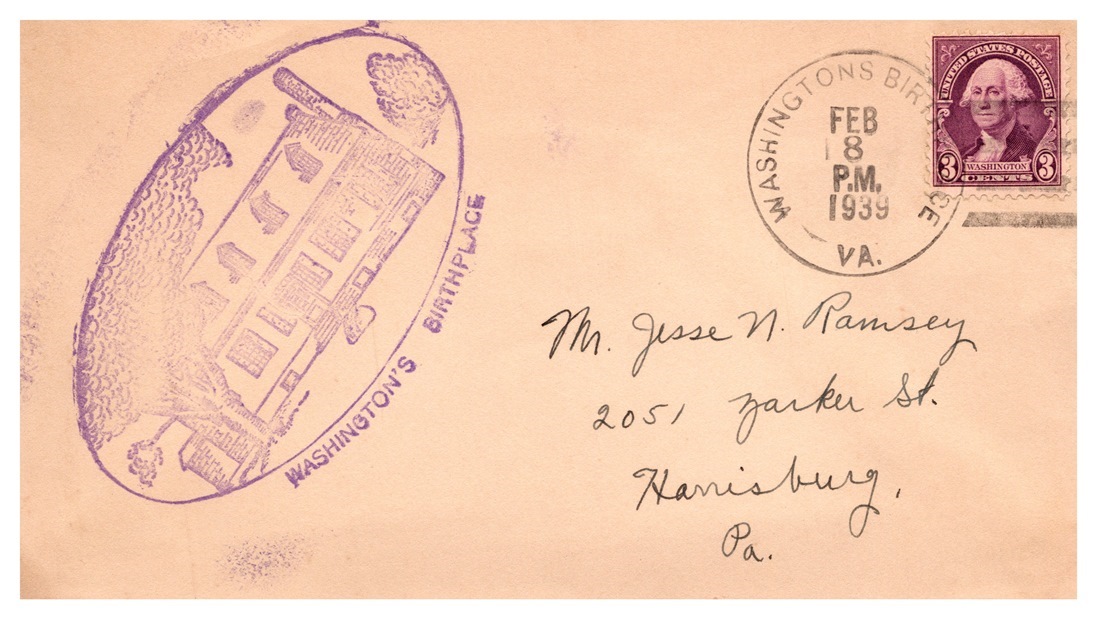 WASHINGTON'S BIRTHPLACE
WASHINGTONS BIRTHPLACE
FEB
8
P.M.
1939
VA.
UNITED STATES POSTAGE
3 WASHINGTON 3
CENTS
Mr. Jesse N. Ramsey
2051 Zarker St.
Harrisburg,
Pa.